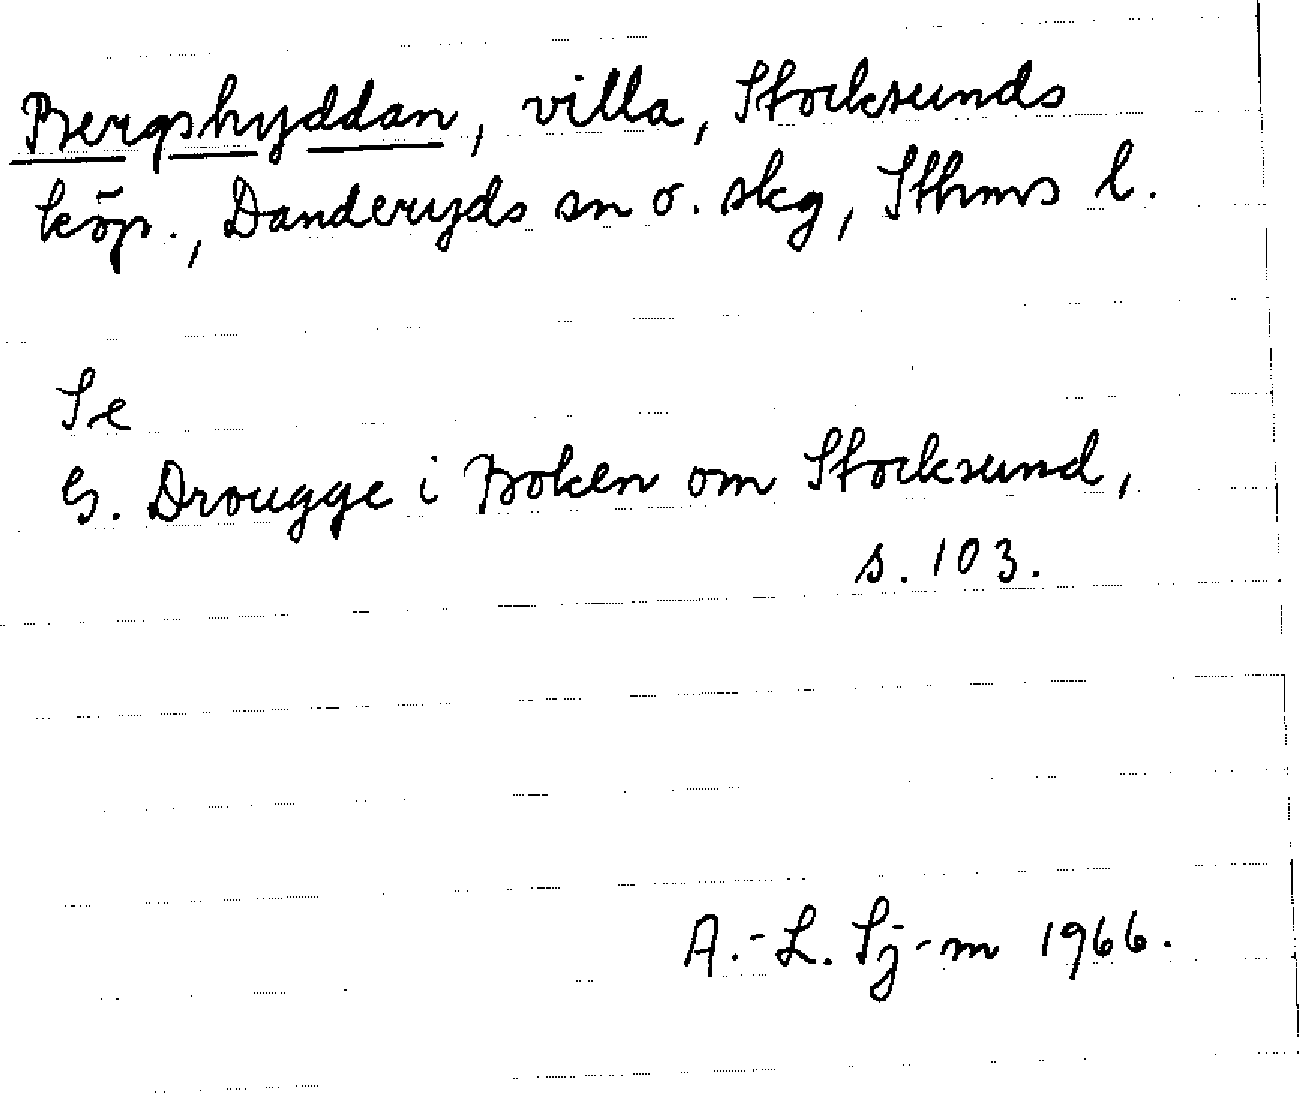 Bergshyddan, villa, Stocksunds
köp., Danderyds sn o. skg, Sthms l.
Se
G. Drougge i Boken om Stocksund,
s. 103.
A.-L. Sj-m 1966.